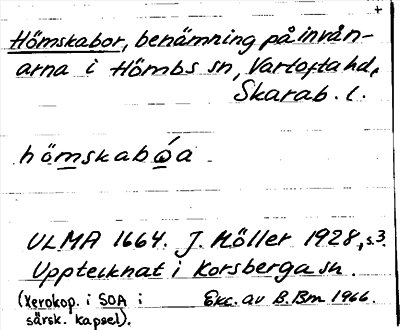 +
Hömskabor, benämning på invån-
arna i Hömbs sn, Vartofta hd,
Skarab. l.
hömskabǫ́a
ULMA 1664. J. Möller 1928, s. 3.
Upptecknat i Korsberga sn.
(Xerokop. i SOA i Exc. av B. Bm 1966.
särsk. kapsel).